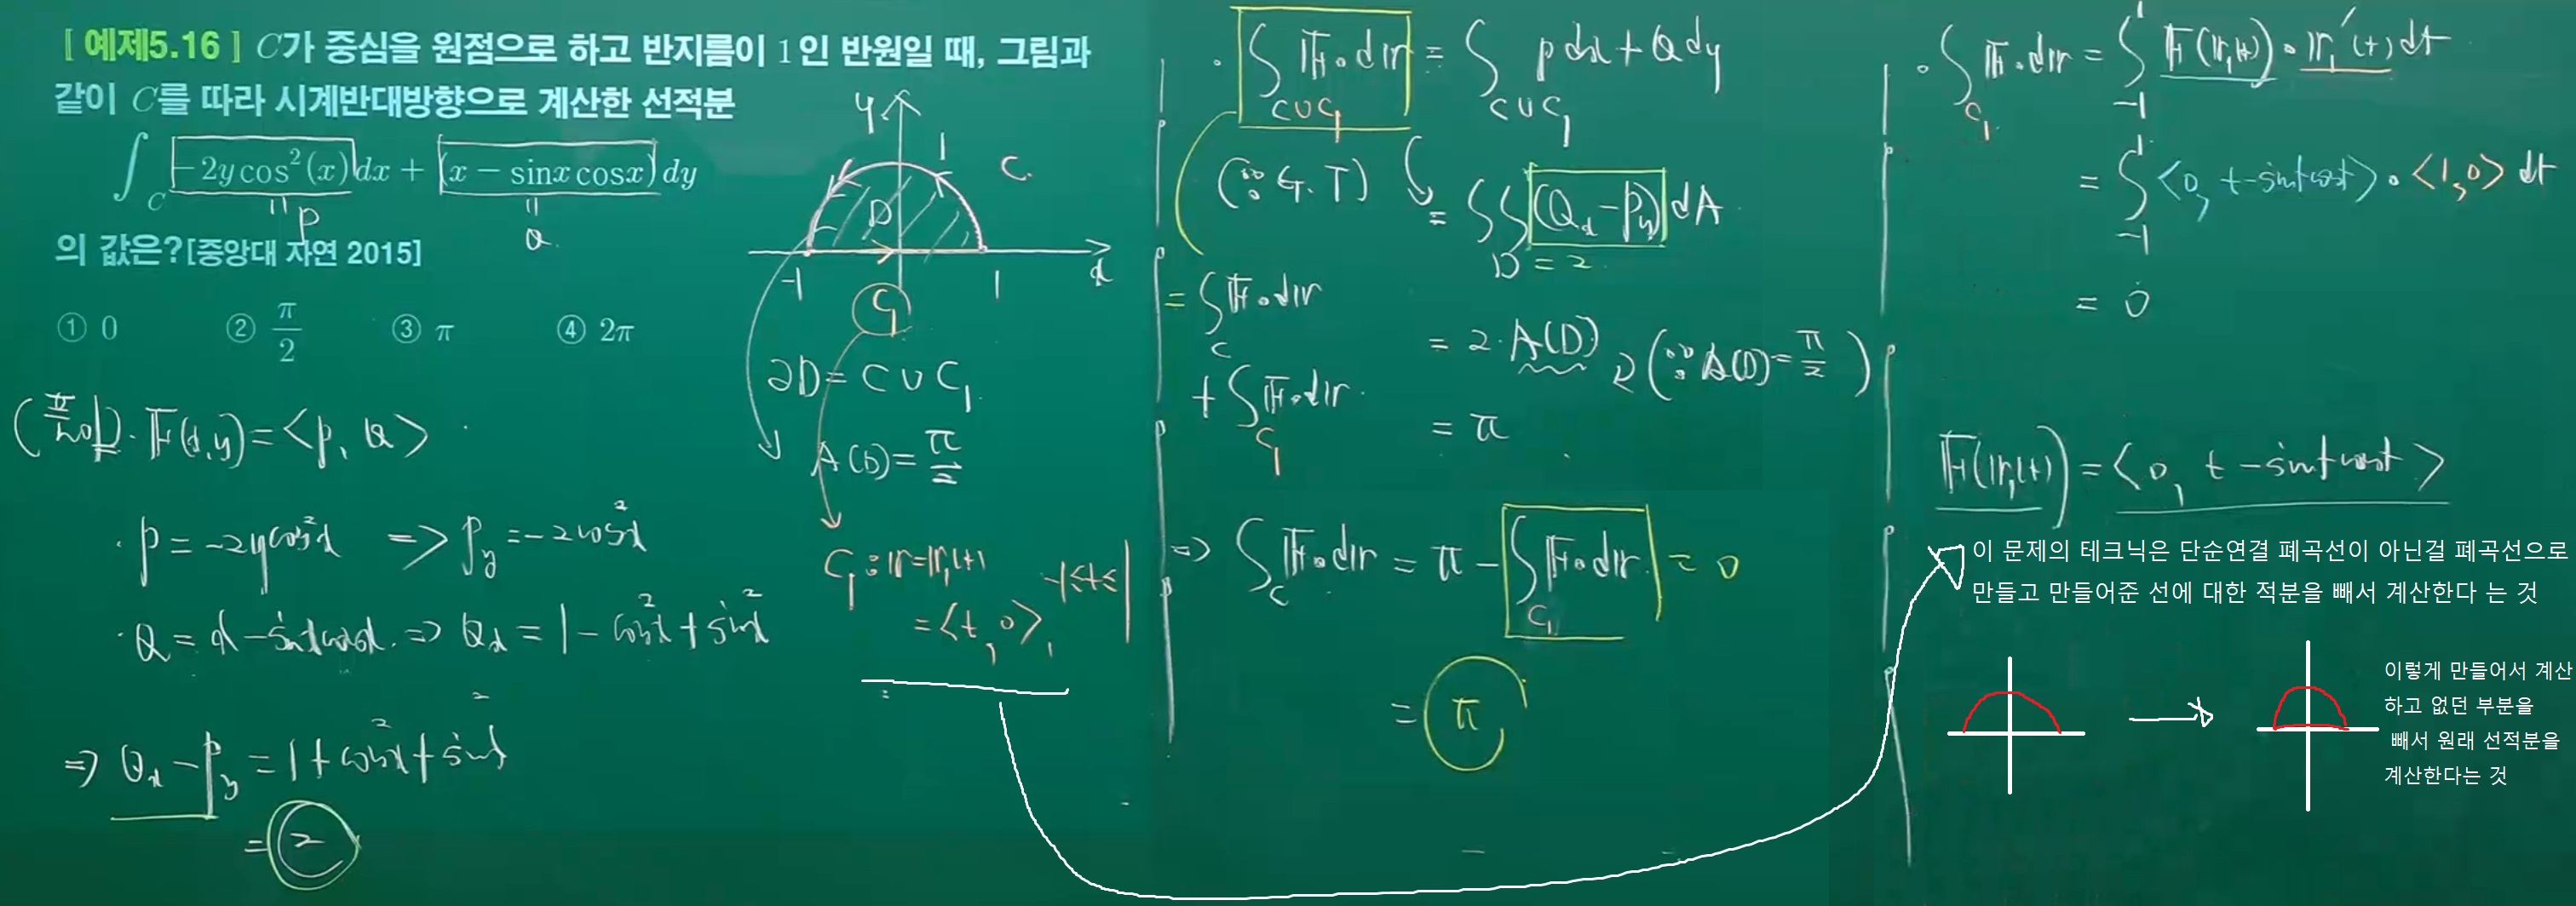 [ 예제5.16 ] C가 중심을 원점으로 하고 반지름이 1인 반원일 때, 그림과
같이 C를 따라 시계반대방향으로 계산한 선적분
∫_C -2y cos²(x) dx + (x - sinx cosx) dy
P
Q
의 값은?[중앙대 자연 2015]
① 0 ② π/2 ③ π ④ 2π
y
1
C
D
-1
1
x
C₁
∂D = C ∪ C₁
A(D) = π/2
(풀이) · F(x,y) = <P, Q>
· P = -2y cos²x => P_y = -2cos²x
· Q = x - sinx cosx => Q_x = 1 - cos²x + sin²x
=> Q_x - P_y = 1 + cos²x + sin²x
= 2
C₁ : r = r₁(t)
= <t, 0>, -1≤t≤1
· ∫_{C∪C₁} F·dr = ∫_{C∪C₁} P dx + Q dy
(∵ G.T) = ∬_D (Q_x - P_y) dA
= 2
= ∫_C F·dr
+ ∫_{C₁} F·dr
= 2·A(D) (∵ A(D) = π/2)
= π
=> ∫_C F·dr = π - ∫_{C₁} F·dr = 0
= π
· ∫_{C₁} F·dr = ∫_{-1}^{1} F(r₁(t)) · r₁′(t) dt
= ∫_{-1}^{1} <0, t - sint cost> · <1, 0> dt
= 0
F(r₁(t)) = <0, t - sint cost>
이 문제의 테크닉은 단순연결 폐곡선이 아닌걸 폐곡선으로
만들고 만들어준 선에 대한 적분을 빼서 계산한다 는 것
이렇게 만들어서 계산
하고 없던 부분을
빼서 원래 선적분을
계산한다는 것